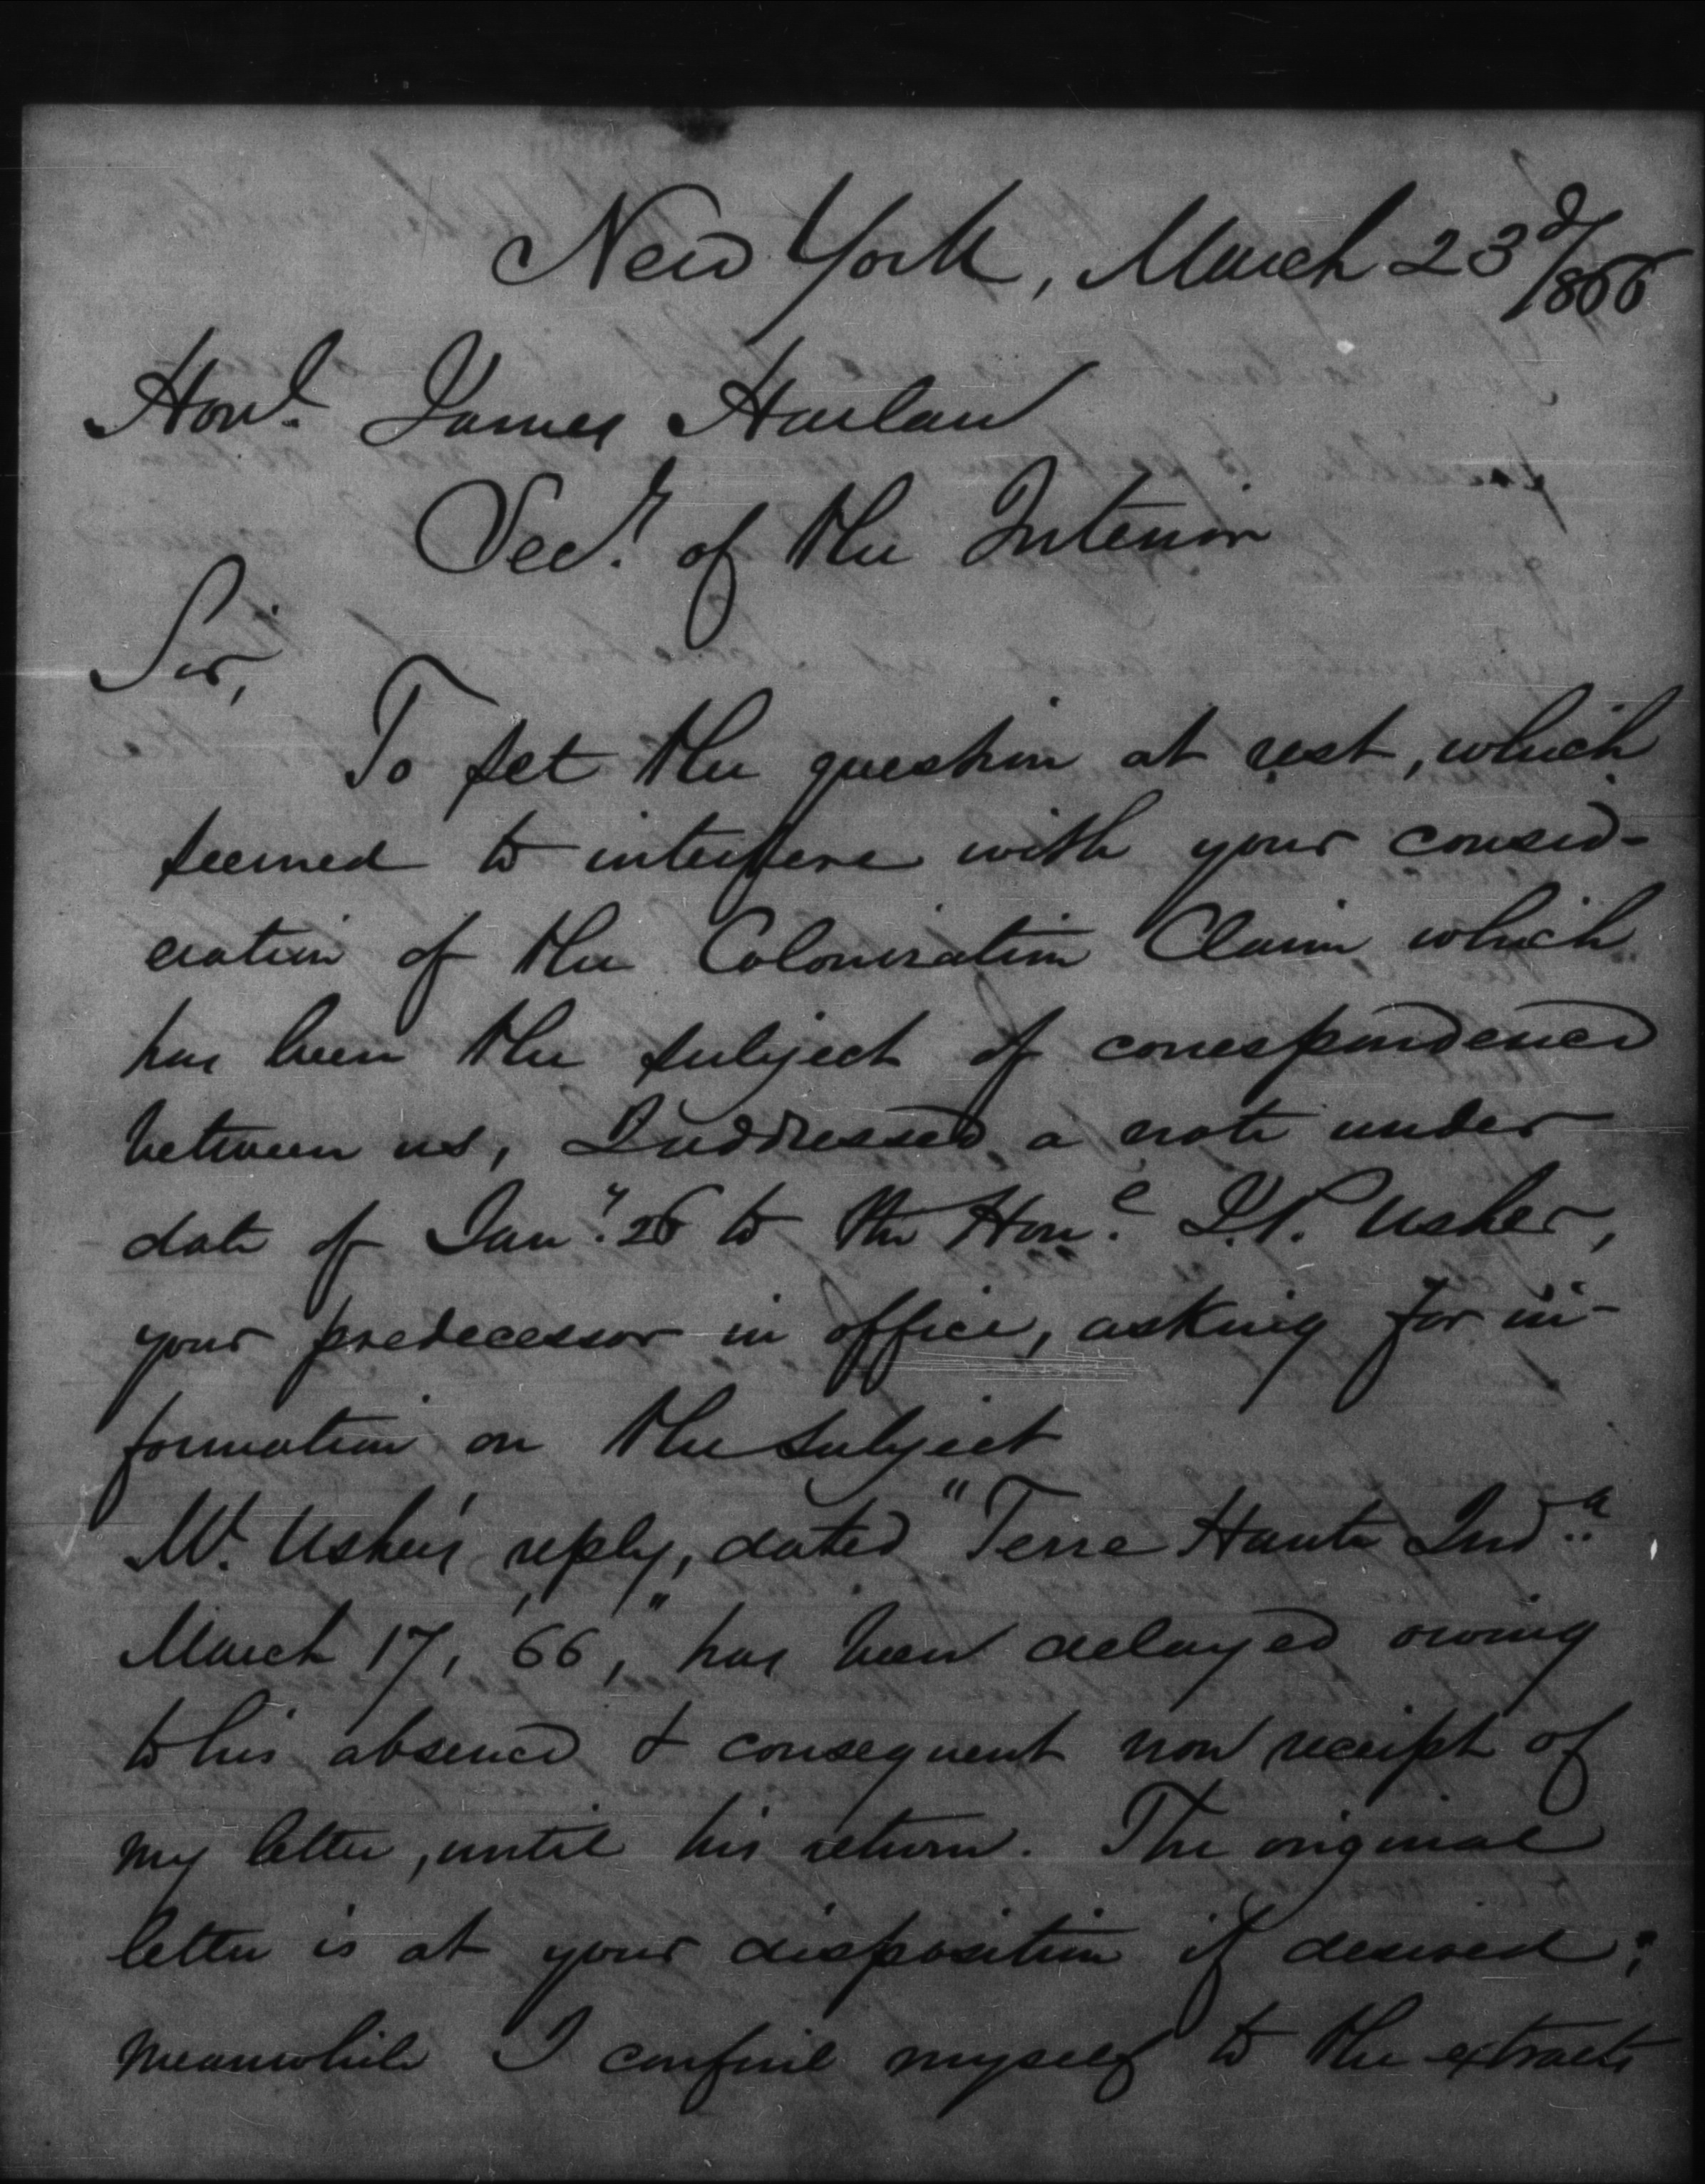 New York, March 23d/1866
Honl. James Harlan
Secr. of the Interior
Sir,
To set the question at rest, which
seemed to interfere with your consid-
eration of the Colonization Claim which
has been the subject of correspondence
between us, I addressed a note under
date of Jany. 26 to the Hone. J.P. Usher,
your predecessor in office, asking for in-
formation on the subject
Mr. Usher's reply, dated "Terre Haute Inda.
March 17, '66," has been delayed owing
to his absence & consequent non receipt of
my letter, until his return. The original
letter is at your disposition if desired;
meanwhile I confine myself to the extracts